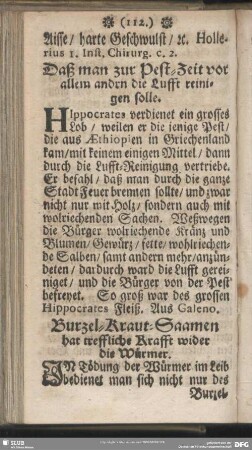 (112.)
Aisse / harte Geschwulst / ꝛc. Holle-
rius 1. Inst. Chirurg. c. 2.
Daß man zur Pest-Zeit vor
allem andrn die Lufft reini-
gen solle.
HIppocrates verdienet ein grosses
Lob / weilen er die jenige Pest /
die aus Æthiopien in Griechenland
kam / mit keinem einigen Mittel / dann
durch die Lufft-Reinigung vertriebe.
Er befahl / daß man durch die ganze
Stadt Feuer brennen sollte / und zwar
nicht nur mit Holz / sondern auch mit
wolriechenden Sachen. Weßwegen
die Bürger wolriechende Kränz und
Blumen / Gewürz / fette / wohlriechen-
de Salben / samt andern mehr / anzün-
deten / dardurch ward die Lufft gerei-
niget / und die Bürger von der Pest
befreyet. So groß war des grossen
Hippocrates Fleiß. Aus Galeno.
Burzel-Kraut-Saamen
hat treffliche Krafft wider
die Würmer.
IN Tödung der Würmer im Leib
bedienet man sich nicht nur des
Burzel
SLUB
DFG